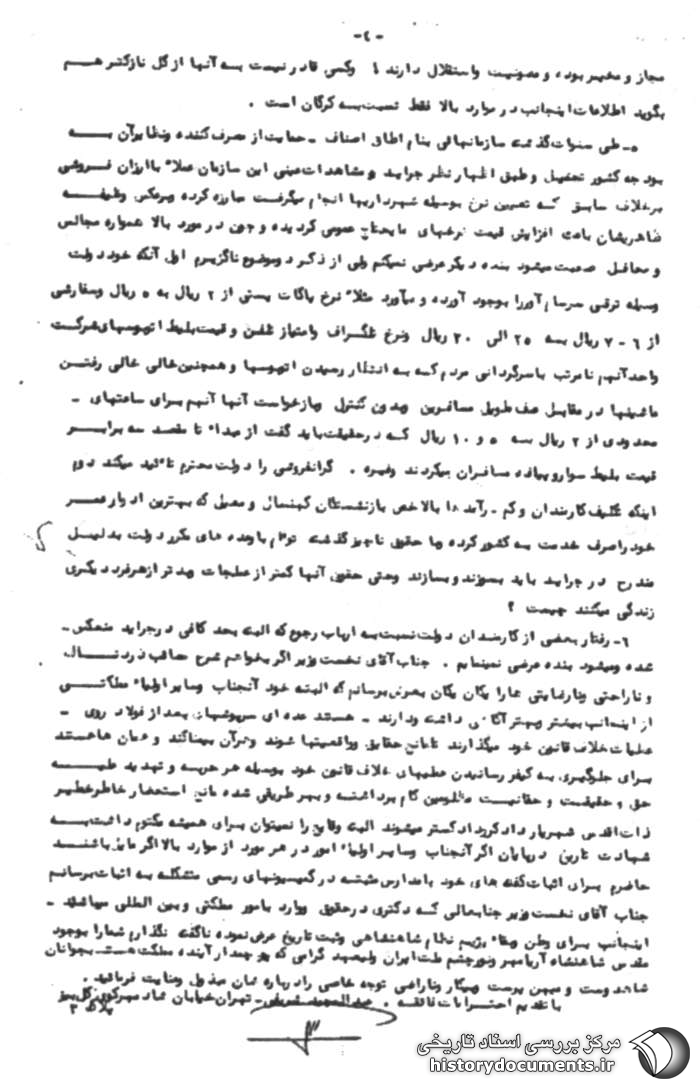 -٤-
مجاز و مخیر بوده و مصونیت واستقلال دارند ! وکسی قادر نیست به آنها از گل نازکتر هـم
بگوید اطلاعات اینجانب در موارد بالا فقط نسبت به گرگان است .
۵- طی سنوات گذشته سازمانهائی بنام اطاق اصناف - حمایت از مصرف کننده ونظایر آن بـه
بودجه کشور تحمیل و طبق اظهار نظر جراید و مشاهدات عینی این سازمان عملاً با ارزان فروشی
برخلاف سابق که تعیین نرخ بوسیله شهرداریها انجام میگرفت مبارزه کرده وبرعکس وظیفـه
ظاهریشان باعث افزایش قیمت نرخهای مایحتاج عمومی گردیده و چون در مورد بالا همواره مجالس
و محافل صحبت میشود بنده دیگر عرضی نمیکنم ولی از ذکر دو موضوع ناگزیرم اول آنکه خود دولت
وسیله ترقی سرسام آور را بوجود آورده و میآورد مثلاً نرخ پاکات پستی از ۲ ریال به ۵ ریال وسفارشی
از ۶ - ۷ ریال به ۲۵ الی ۳۰ ریال ونرخ تلگراف وامتیاز تلفن و قیمت بلیط اتوبوسهای شرکت
واحد آنهم نامرتب با سرگردانی مردم که به انتظار رسیدن اتوبوسها و همچنین خالی خالی رفتـن
ماشینها در مقابل صف طویل مسافرین وبدون کنترل وبازخواست آنها آنهم برای ساعتهای -
معدودی از ۲ ریال به ۵ و ۱۰ ریال که در حقیقت باید گفت از مبداء تا مقصد سه برابـر
قیمت بلیط سوار وپیاده مسافران میگردند وغیره . گرانفروشی را دولت محترم تائید میکند دوم
اینکه تکلیف کارمندان و کم - رآمدها بالاخص بازنشستگان کهنسال و معیل که بهترین ادوار عمـر
خود را صرف خدمت به کشور کرده وبا حقوق ناچیز گذشته توأم با وعده های مکرر دولت بدلیـل
مندرج در جراید باید بسوزند وبسازند وحتی حقوق آنها کمتر از عملجات وبدتر از هر فرد دیگری
زندگی میکنند چیست ؟
۶- رفتار بعضی از کارمندان دولت نسبت به ارباب رجوع که البته بحد کافی در جراید منعکس -
شده ومیشود بنده عرضی نمینمایم . جناب آقای نخست وزیر اگر بخواهم شرح مصائب
و ناراحتی ونارضایتی ها را یکان یکان بعرض برسانم که البته خود آنجناب وسایر اولیاء مملکتـی
از اینجانب بیشتر وبهتر آگاهی داشته ودارند - هستند عده ای سرپوشهای بعد از فولاد روی -
عملیات خلاف قانون خود میگذارند تا مانع حقایق وواقعیتها شوند وهمانها هستند
برای جلوگیری به کیفر رسانیدن عملیهای خلاف قانون خود بوسیله هر حربه و تهدید علیـه
حق و حقیقت و حقانیت مظلومین گام برداشته و بهر طریقی شده مانع استحضار خاطر خطیر
ذات اقدس شهریار دادگر دادگستر میشوند البته وقایع را نمیتوان برای همیشه مکتوم داشت بـه
شهادت تاریخ در پایان اگر آنجناب وسایر اولیاء امور در هر مورد از موارد بالا اگر مایل باشنـد
حاضرم برای اثبات گفته های خود با مدارس مثبته در کمیسیونهای رسمی متشکله به اثبات برسانم
جناب آقای نخست وزیر جنابعالی که دکتری در حقوق ووارد بامور مملکتی و بین المللی میباشید -
اینجانب برای وطن وبقاء رژیم نظام شاهنشاهی وثبت تاریخ عرض نموده ناگفته نگذارم شما را بوجود
مقدس شاهنشاه آریامهر ونور چشم ملت ایران ولیعهد گرامی که آینده مملکت هستند بجوانان
شاهدوست و میهن پرست وبیکار وناراضی توجه خاصی را درباره شان مبذول وعنایت فرمائید .
با تقدیم احترامات فائقه . تهران خیابان کوی گل
پلاک ۳
مرکز بررسی اسناد تاریخی
historydocuments.ir